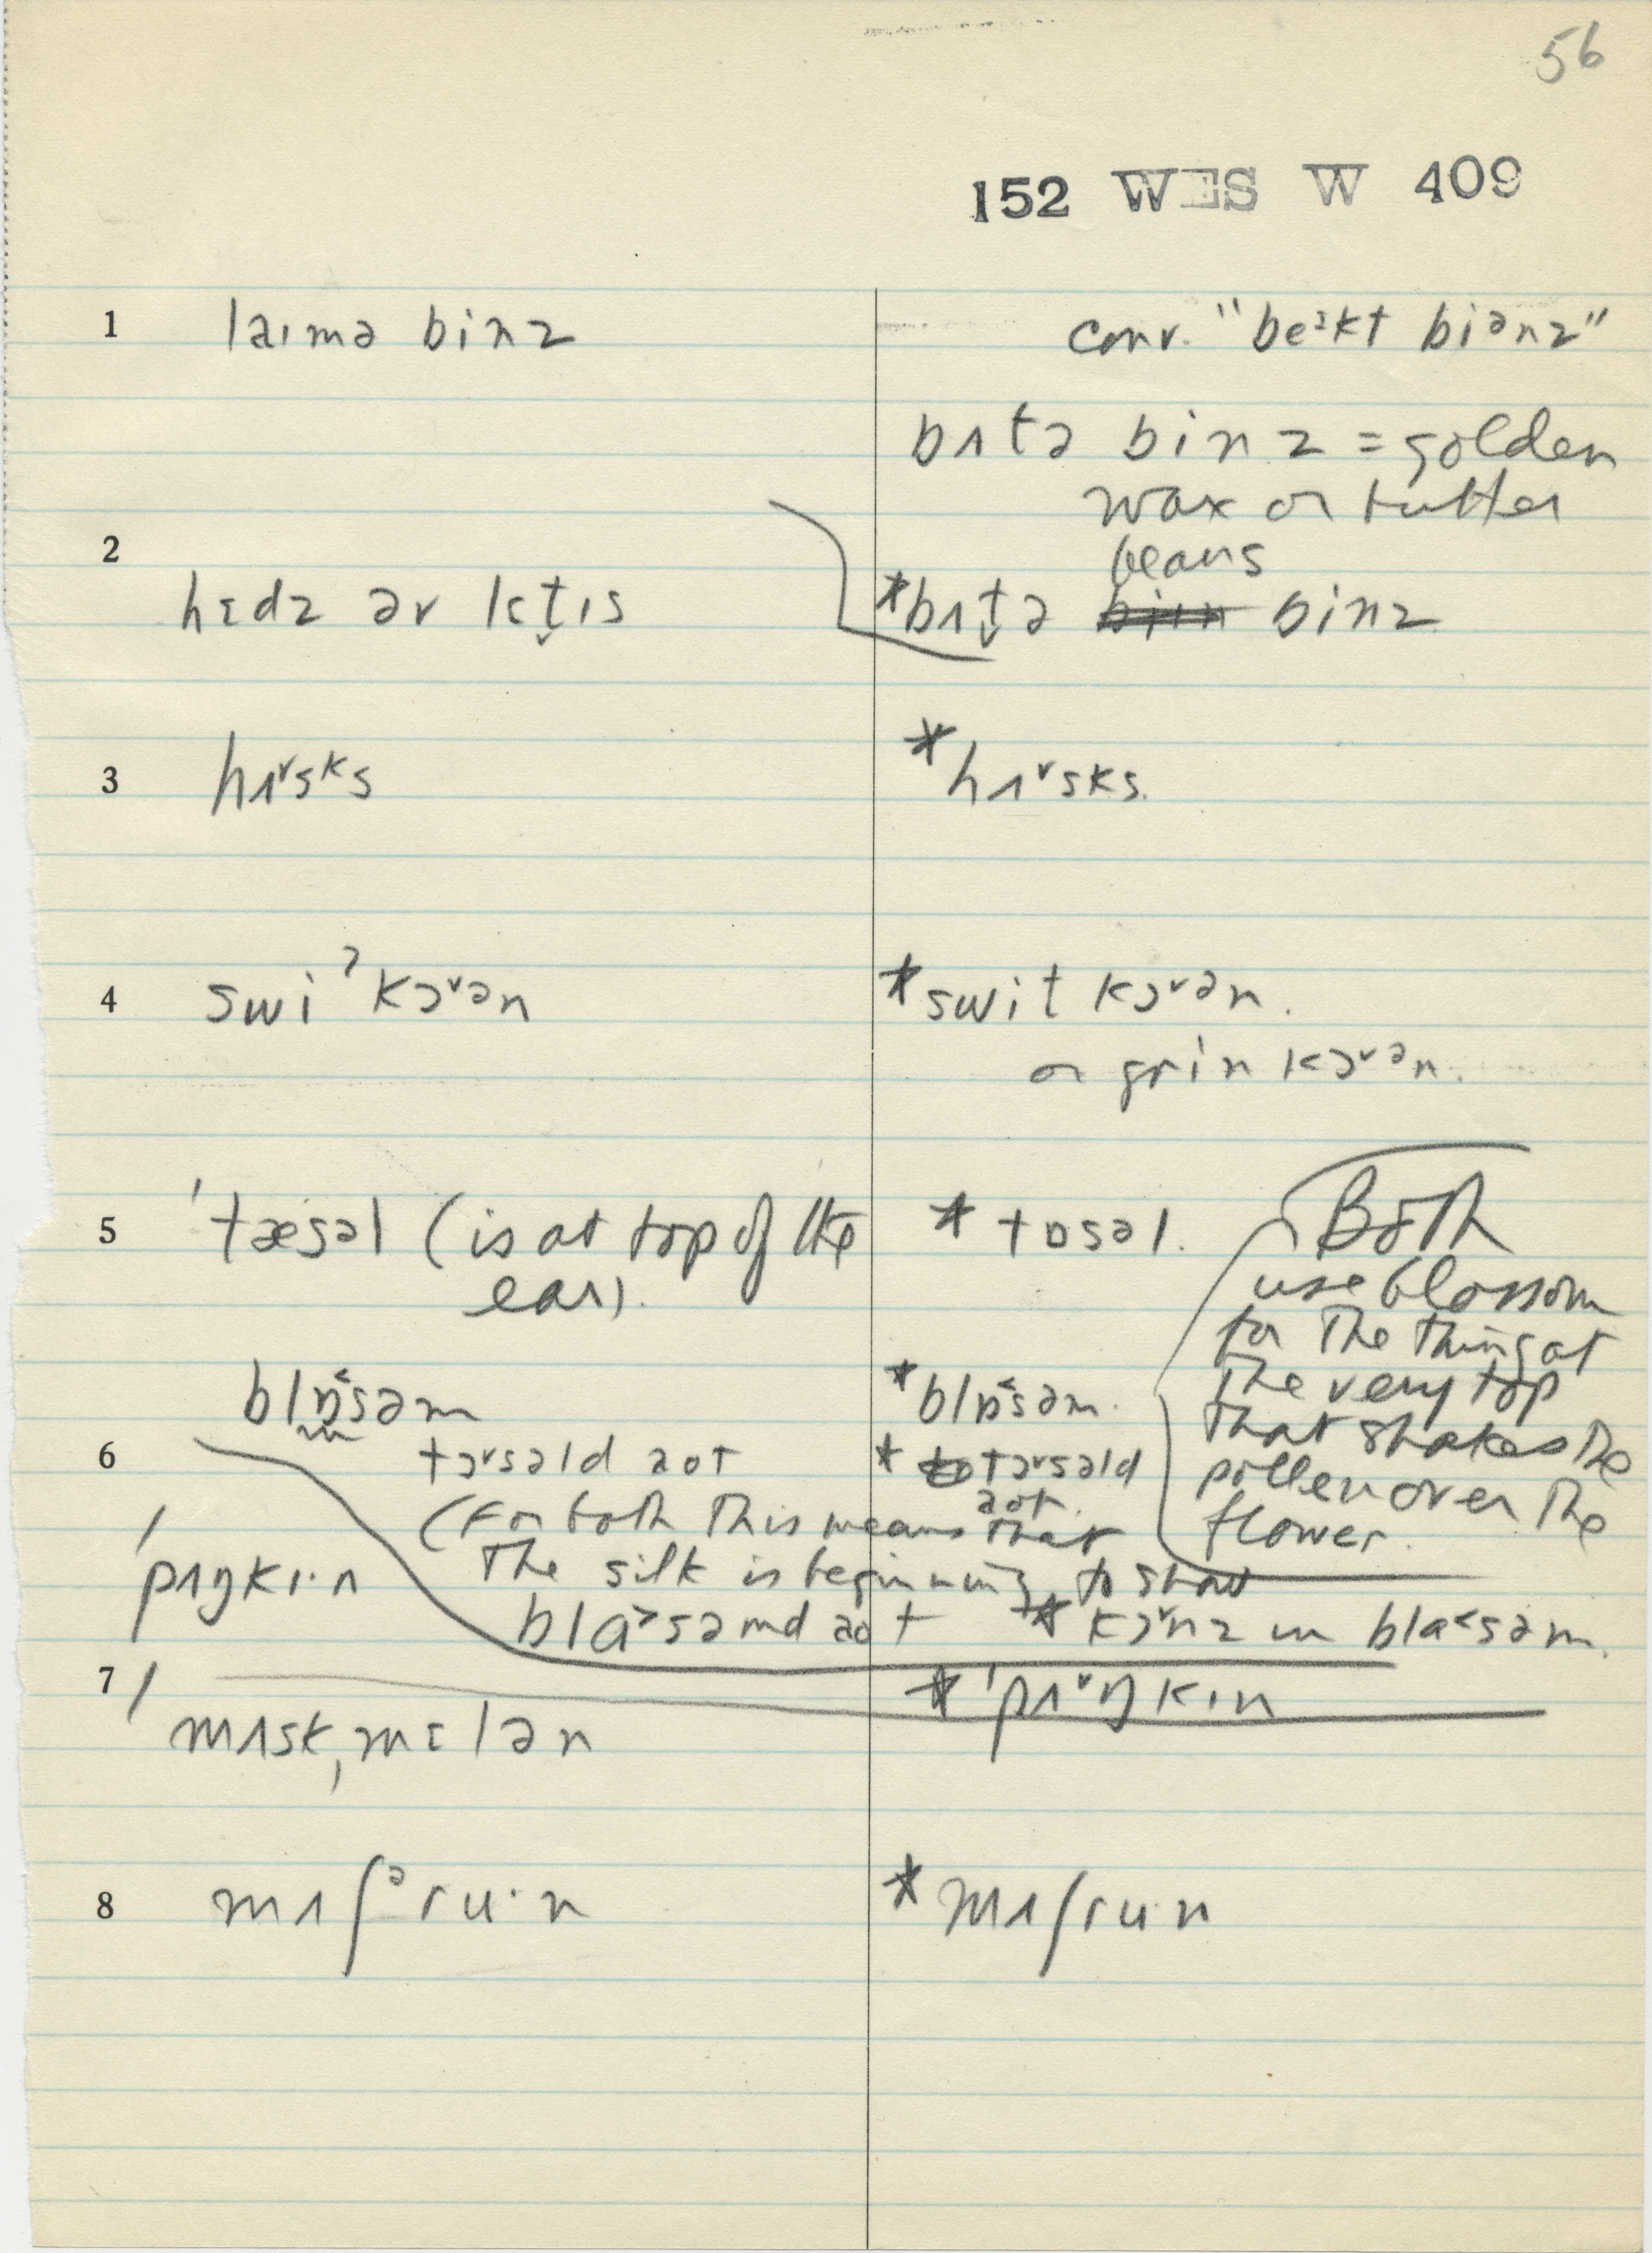 56
152 WES W 409
1 laɪmə binz
conv. "beᶦkt biᵊnz"
bʌtə binz = golden
wax or butter
beans
2
hɛdz əv lɛt̬ɪs
*bʌt̬ə binz
3 hʌᵛsᵏs
*hʌᵛsks.
4 swiˀ kɔᵛən
*swit kɔᵛən.
or grin kɔᵛᵊn.
5 ˈtæsəl (is at top of the
ear).
* tɒsəl.
Both
use blossom
for the thing at
the very top
that shakes the
pollen over the
flower.
blɒ˂səm
*blɒ˂səm.
6 tɔᵛsəld aʊt
* tɔᵛsəld
aʊt.
(For both this means that
the silk is beginning to show
ˈpʌŋkɪ·n
blɑ˃səmd aʊt
* kɔᵛnz in blɑ˂səm.
7
* ˈpʌᵛŋkɪn
ˈmʌskˌmɛlən
8 mʌʃᵊru·n
*mʌʃrun